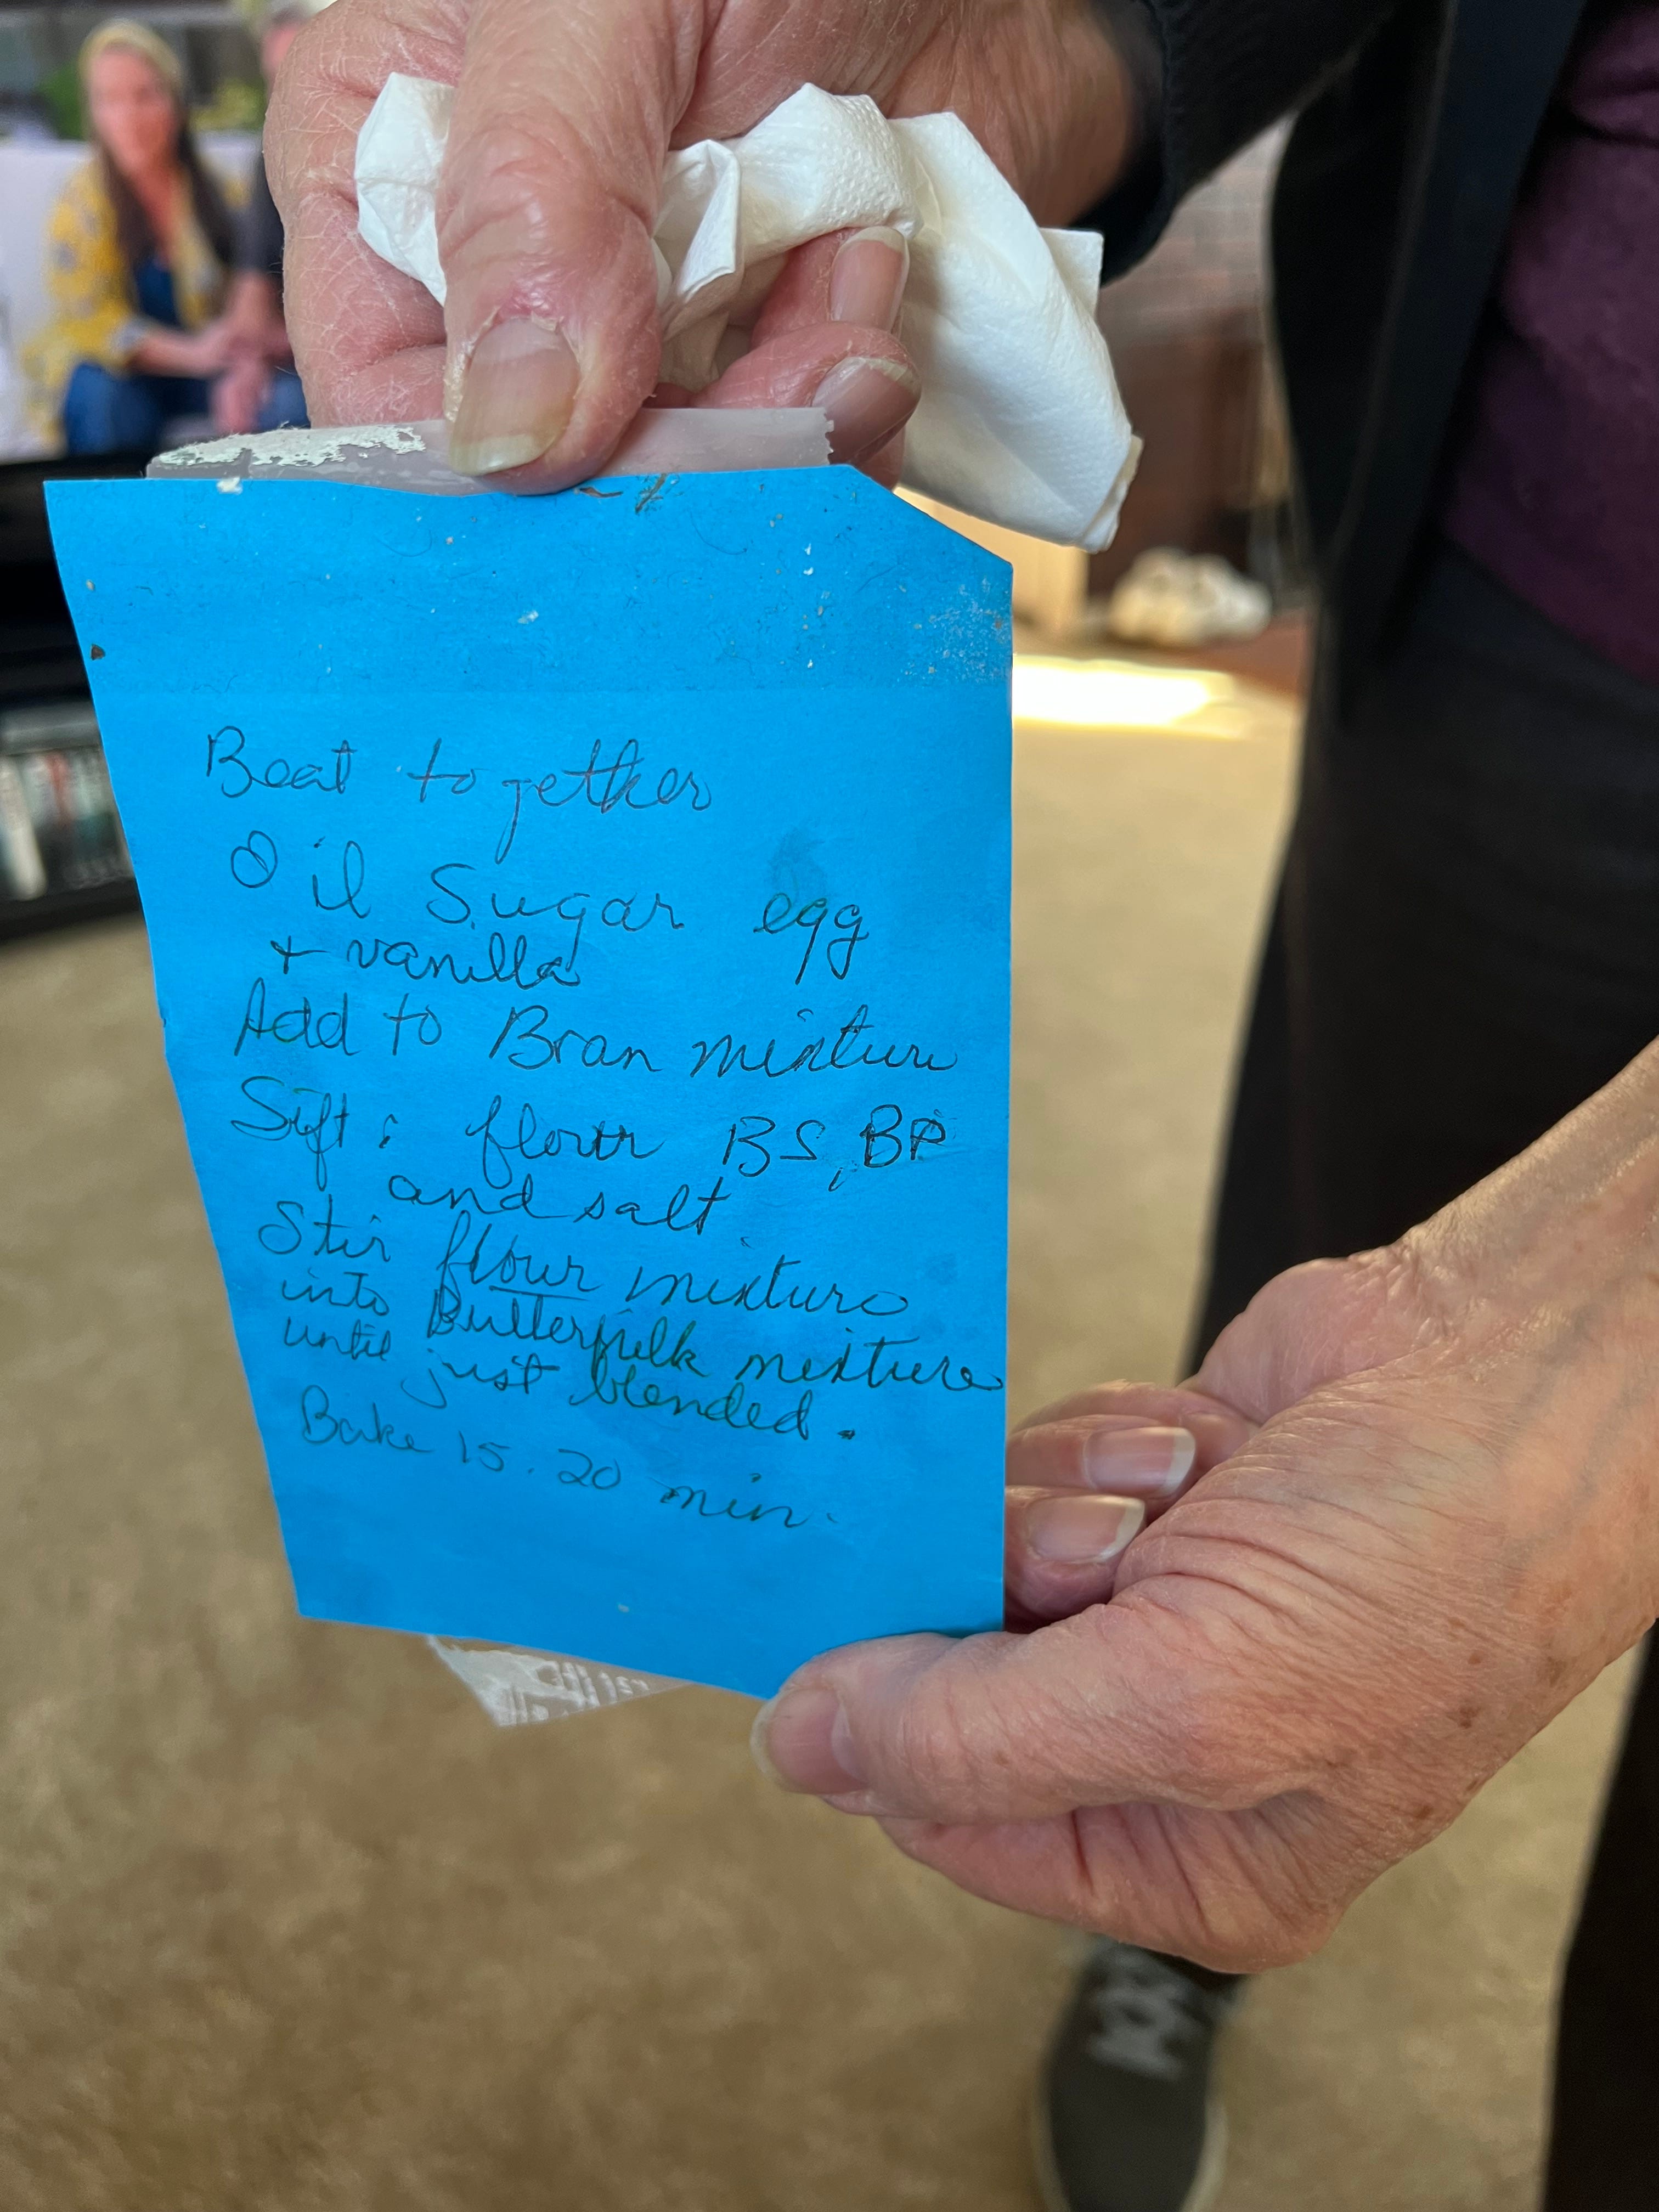 Beat together
Oil Sugar egg
+ vanilla
Add to Bran mixture
Sift: flour BS, BP
and salt
Stir flour mixture
into Buttermilk mixture
until just blended.
Bake 15-20 min.